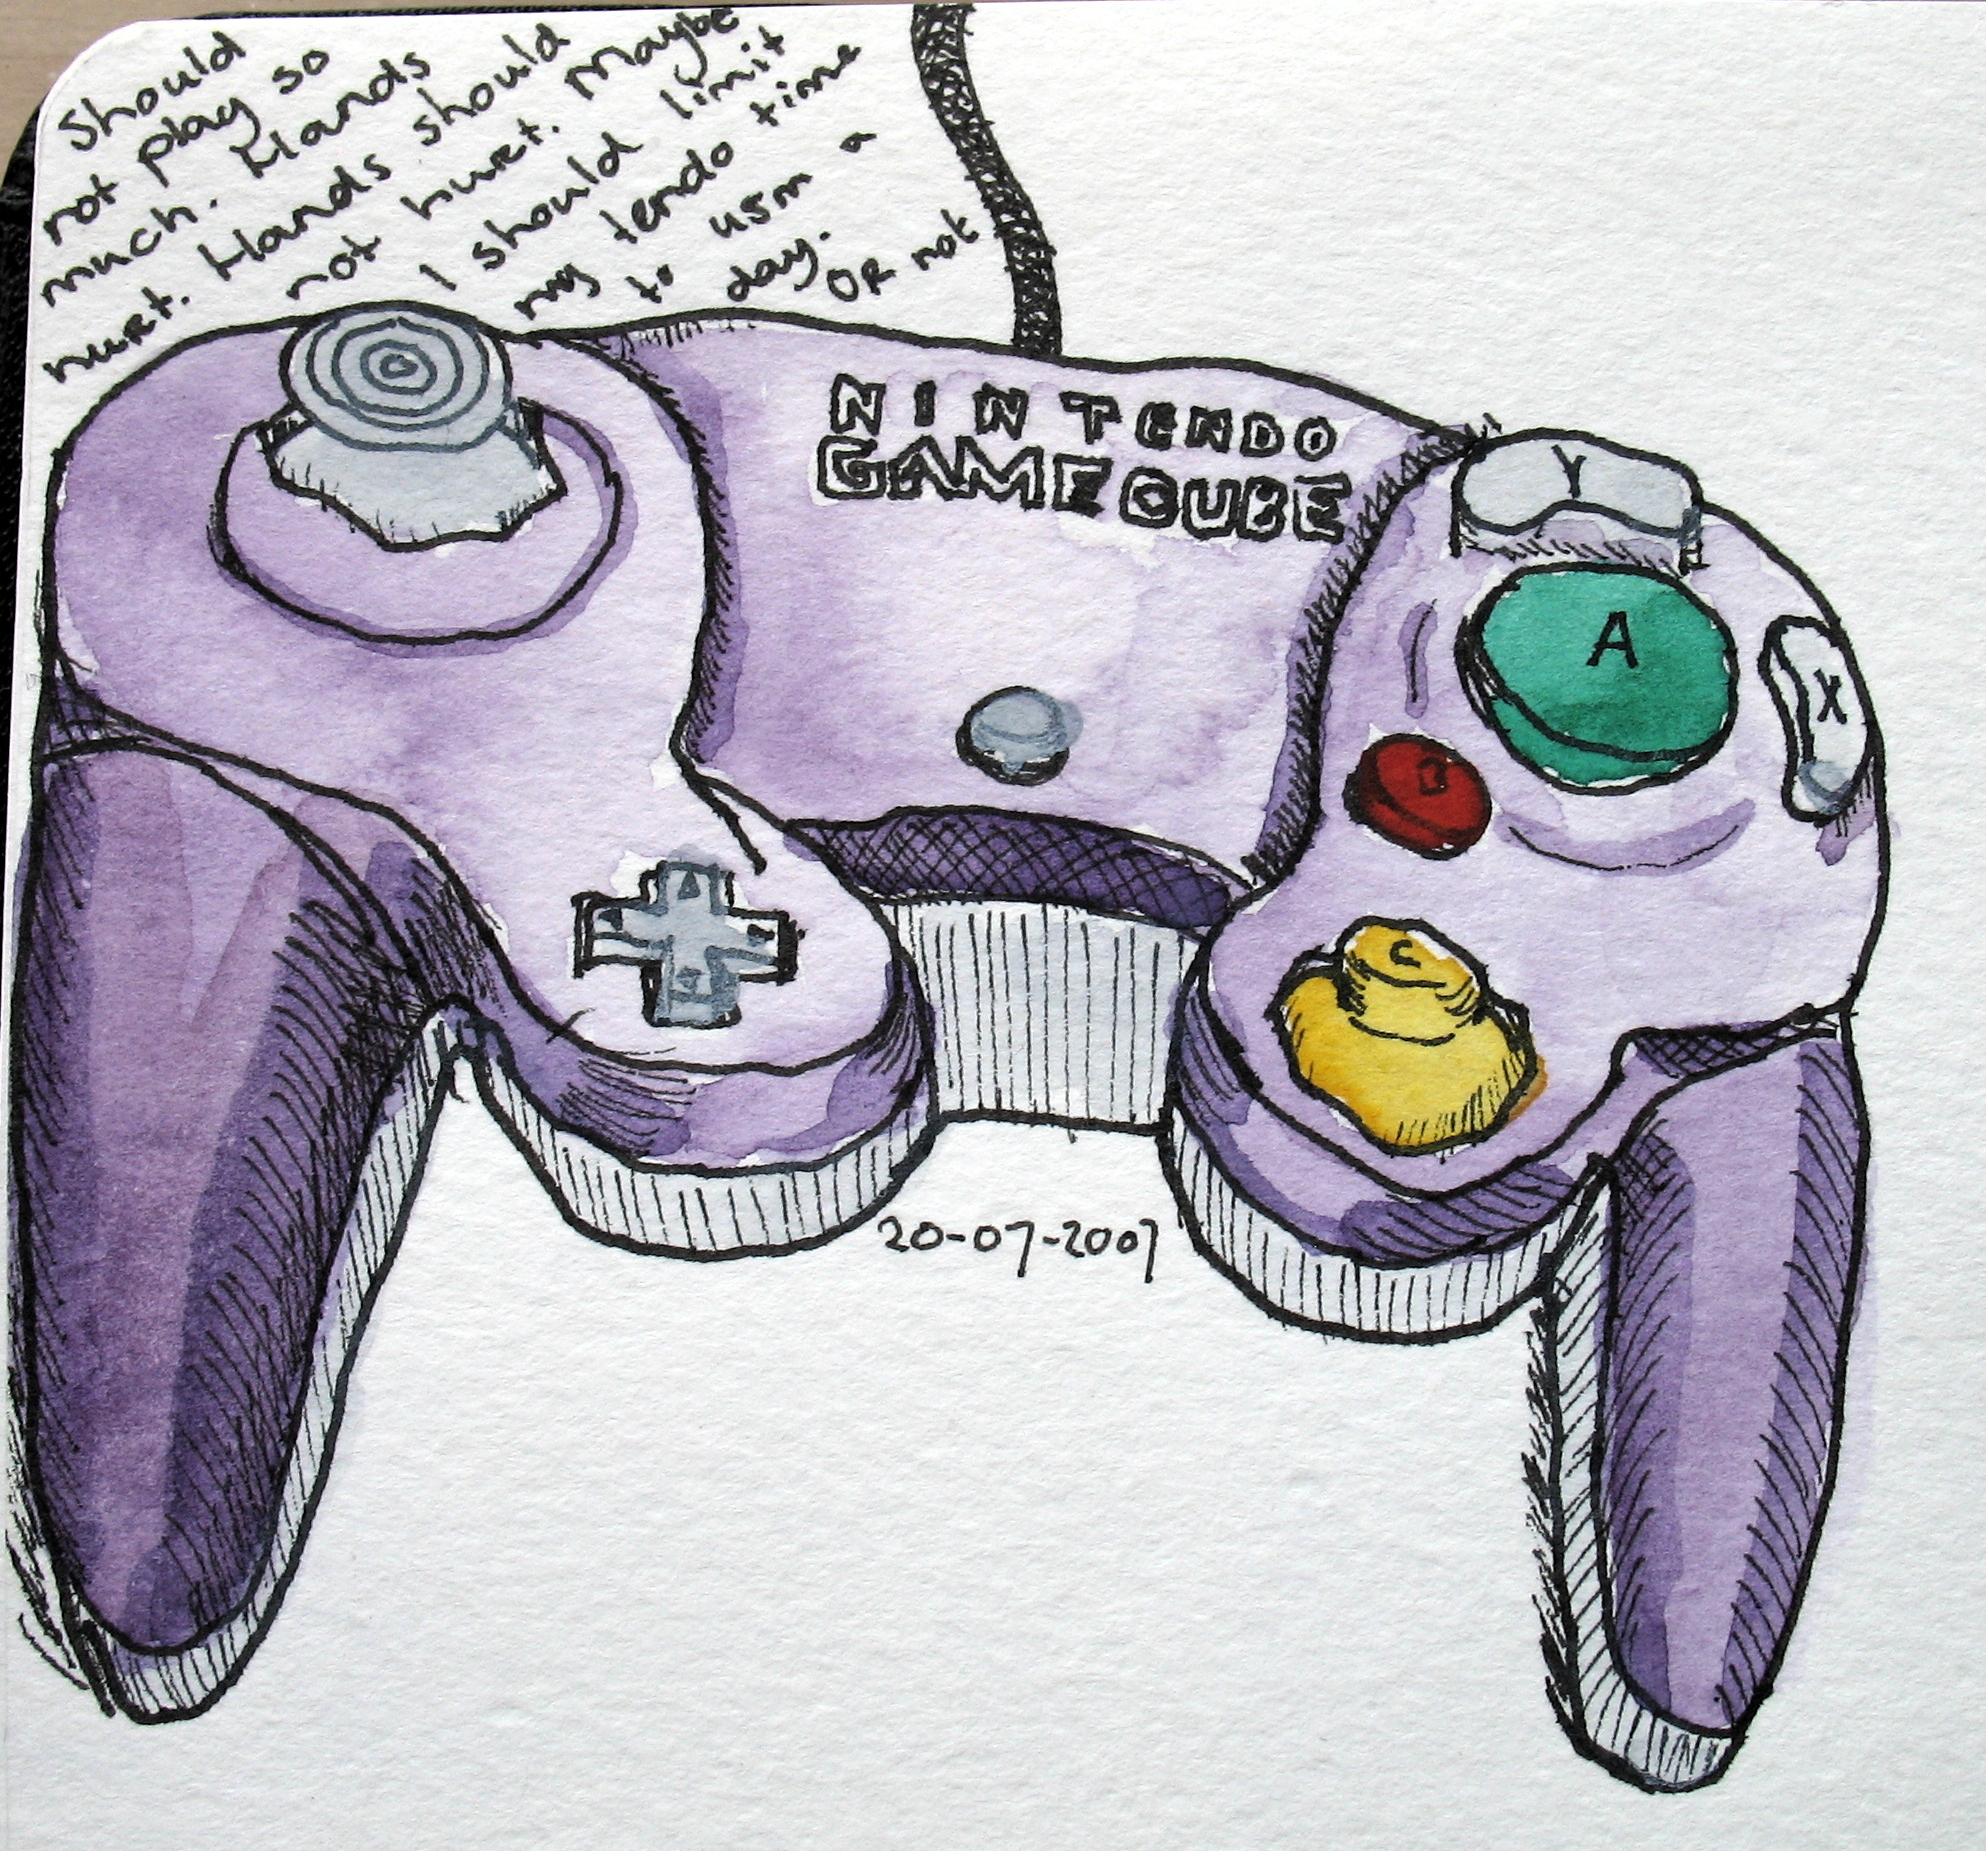 Should
not play so
much. Hands
hurt. Hands should
not hurt. Maybe
I should limit
my tendo time
to 45m a
day.
OR not
NINTENDO
GAMECUBE
Y
A
X
B
C
20-07-2007